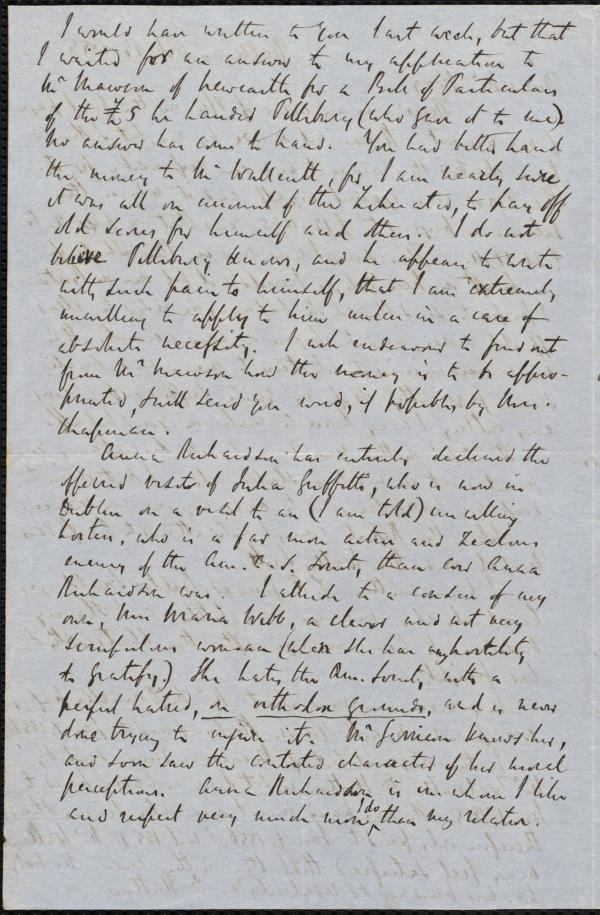 I would have written to you last week, but that
I waited for an answer to my application to
Mr Mawson of Newcastle for a Bill of Particulars
of the £5 he handed Pillsbury (who gave it to me).
No answer has come to hand. You had better hand
the money to Mr Wallcutt, for I am nearly sure
it was all on account of the Liberator, to pay off
old scores for himself and others. I do not
believe Pillsbury knows, and he appears to write
with such pain to himself, that I am extremely
unwilling to apply to him unless in a case of
absolute necessity. I will endeavour to find out
from Mr Mawson how the money is to be appro-
priated, & will send you word, if possible by Mrs.
Chapman.
Anna Richardson has entirely declined the
offered visits of Julia Griffiths, who is now in
Dublin on a visit to an (I am told) unwilling
hostess, who is a far more active and zealous
enemy of the Am. A. S. Society, than ever Anna
Richardson was. I allude to a cousin of my
own, Mrs Maria Webb, a clever and not very
scrupulous woman (when she has any hostility
to gratify.) She hates the Am. Society with a
perfect hatred, on orthodox grounds, and is never
done trying to injure it. Mr Garrison knows her,
and soon saw the contorted character of her moral
perceptions. Anna Richardson is one whom I like
and respect very much more, than I do my relative.